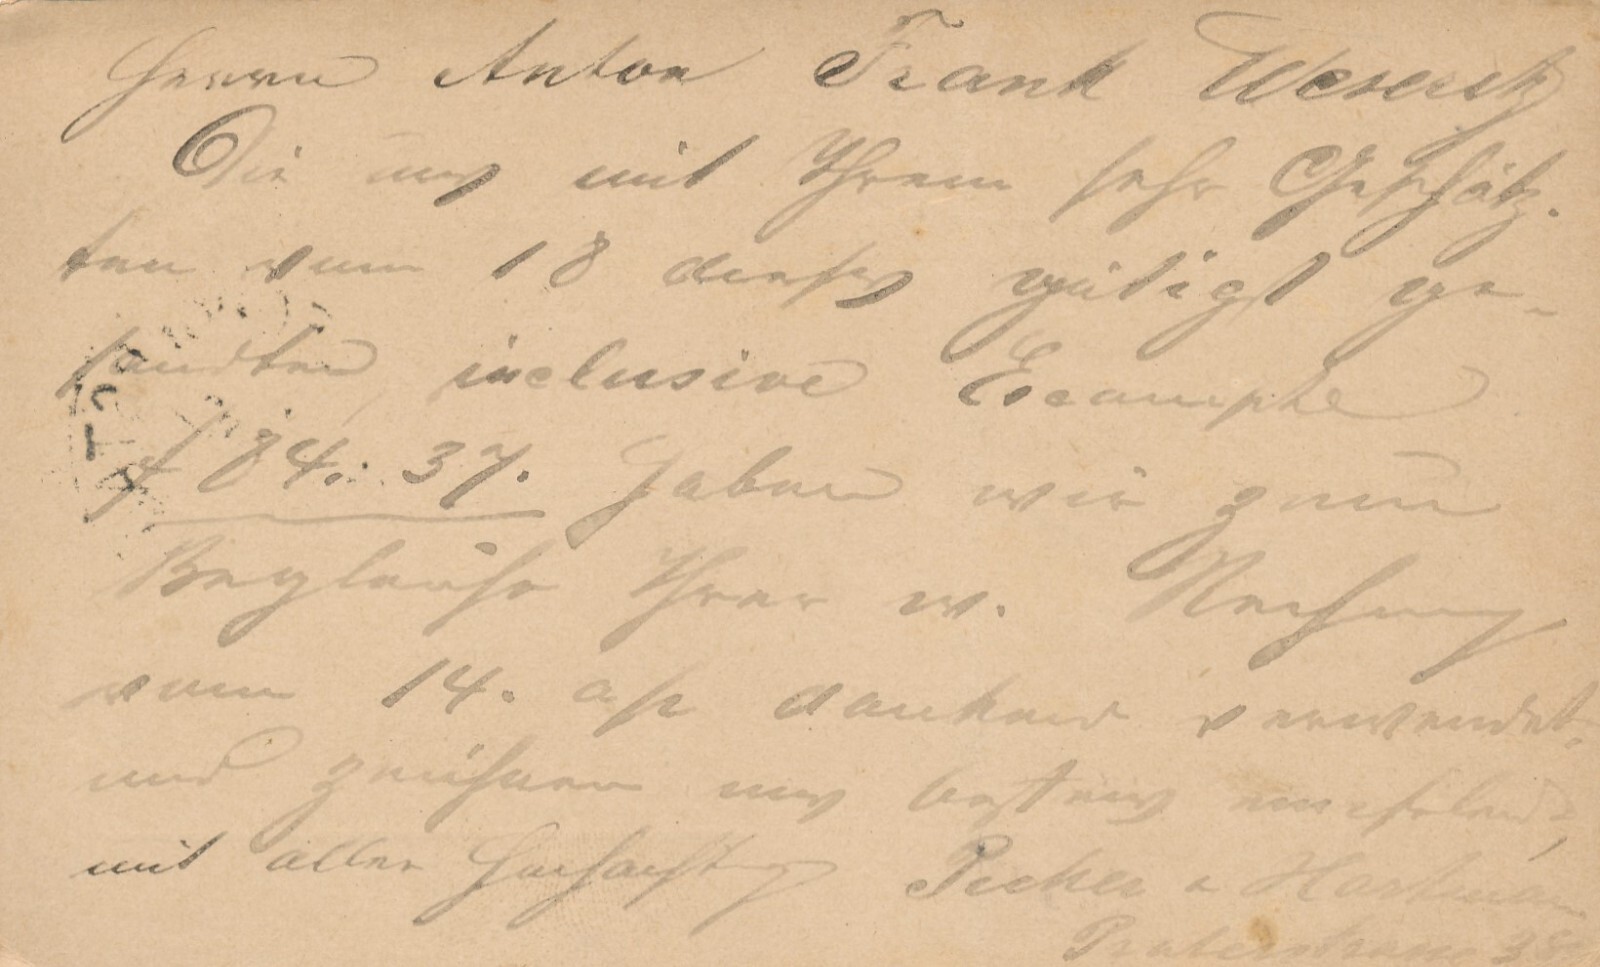 Herrn Anton Frank Weseritz
Die uns mit Ihrem sehr Geschätz-
ten vom 18 dieses gütigst ge-
sandten, inclusive Escompte
f 84. 37. haben wir zum
Begleiche Ihrer w. Rechnung
vom 14. a/p dankend verwendet
und zeichnen uns bestens empfehlend,
mit aller Hochachtung Pecher & Hartmann
Praterstrasse 38